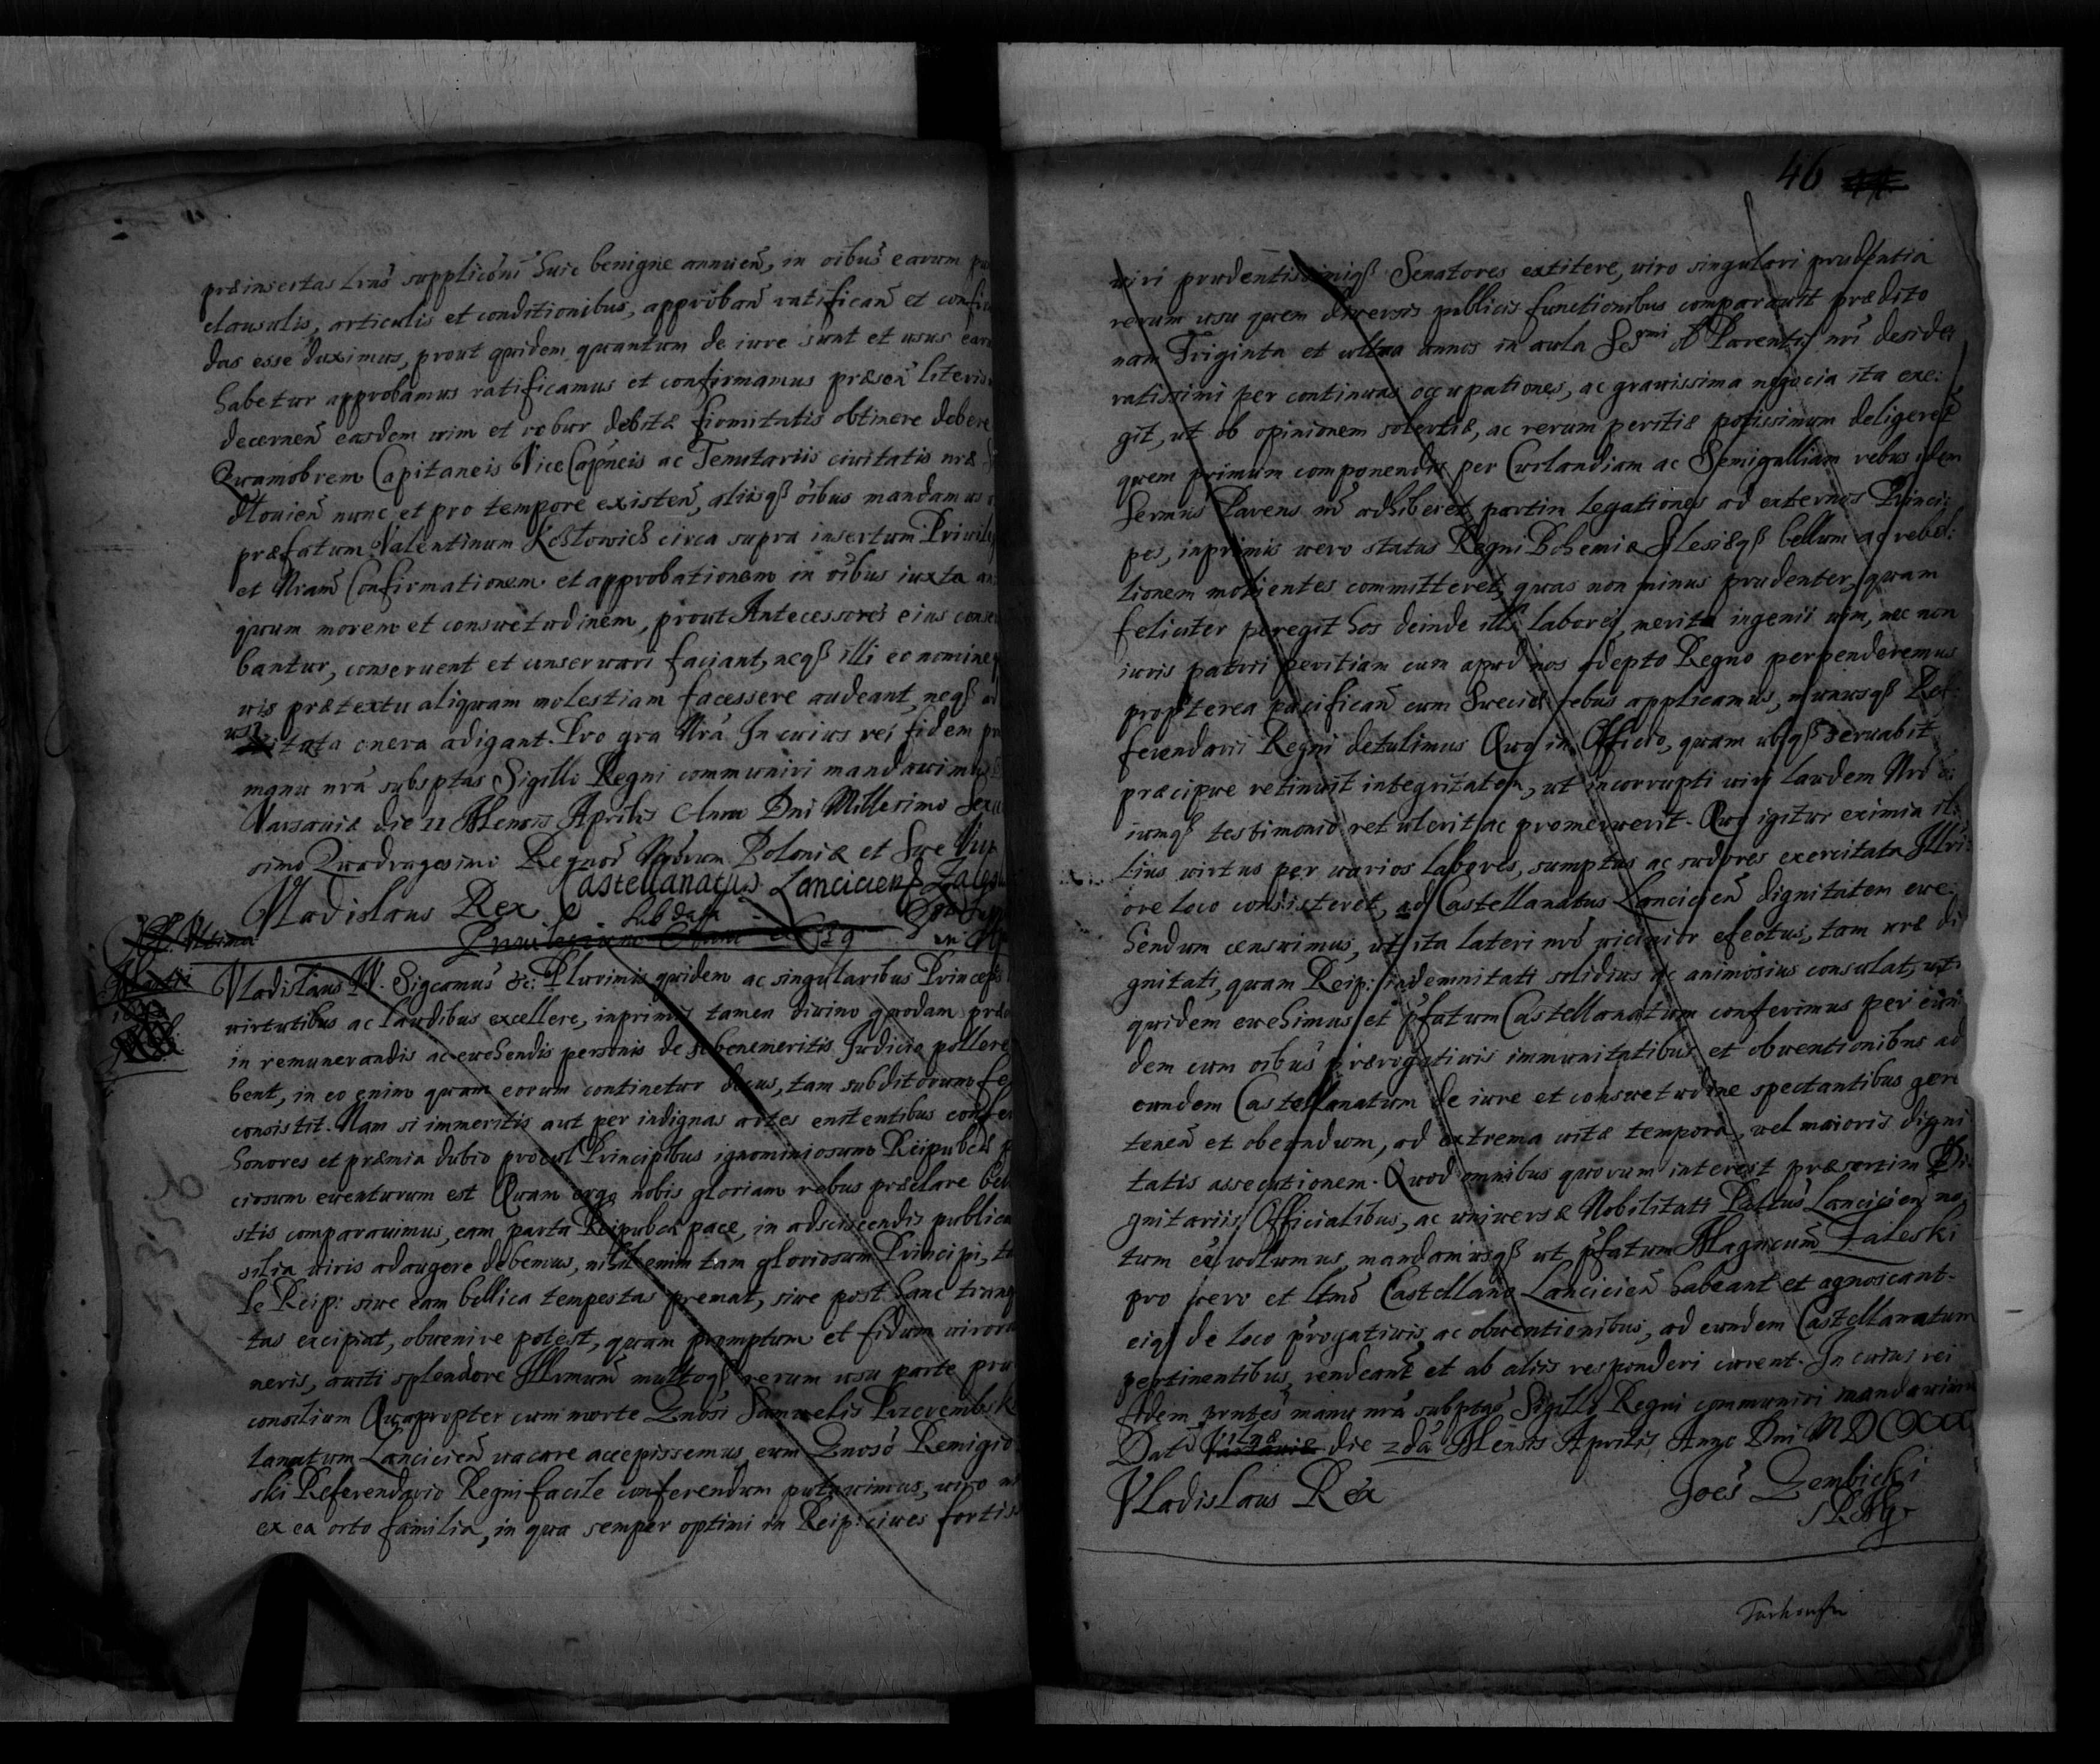 præinsertas Lras supplicõni huic benigne annuen̄, in oibus earum
clausulis, articulis et conditionibus, approban̄ ratifican̄ et confir
das esse duximus, prout quidem quantum de iure sunt et usus ear
habetur approbamus ratificamus et confirmamus præsen̄ literis
decernen̄ easdem vim et robur debitæ firmitatis obtinere debere
Quamobrem Capitaneis ViceCapneis ac Tenutariis civitatis nræ
dloviēn nunc et pro tempore existen̄, aliisqꝫ oibus mandamus
præfatum Valentinum circa supra insertum Privile
et Nram Confirmationem et approbationem in oibus iuxta an
quum morem et consuetudinem, prout Antecessores eius conser
bantur, conservent et conservari faciant, neqꝫ illi eo nomine
vis prætextu aliquam molestiam facessere audeant, neqꝫ ad
usitata onera adigant. Pro gra Nra. In cuius rei fidem
manu nra subsptas Sigillo Regni communiri mandavimus
Varsaviæ die 11 Mensis Aprilis Anno Dni Millesimo Sexce
simo Quadragesimo Regnor̄ Nrorum Poloniæ et Sve
Vladislaus Rex
Castellanatus Lancicien̄ Zaleski
Sub data
Vladislaus IV. Sigcamus &c: Plurimis quidem ac singularibus Princeps
virtutibus ac laudibus excellere, inprimis tamen divino quodam
in remunerandis ac evehendis personis de se benemeritis Judicio pollere
bent, in eo enim quam eorum continetur decus, tam subditorum fe
consistit. Nam si immeritis aut per indignas artes enitentibus confer
honores et præmia dubio procul Principibus ignominiosum Reipublicæ
ciosum eventurum est Quam ergo nobis gloriam rebus præclare
stis comparavimus, eam parta Reipublica pace, in adsciscendis publica
silia viris adaugere debemus, nihil enim tam gloriosum Principi,
le Reip: sive eam bellica tempestas premat, sive post hanc tranq
tas excipiat, obvenire potest, quam promptum et fidum viror
neris, aviti splendore Illrmum̄ multoqꝫ rerum usu parte pru
consilium Quapropter cum morte Gnosi Samuelis Przerembsk
lanatum Lancicien̄ vacare accepissemus eum Gnoso Remigio
ski Referendario Regni facile conferendum putavimus, viro
ex ea orto familia, in qua semper optimi in Reip: cives fortis
46
viri prudentissimiqꝫ Senatores extitere, viro singulari prudentia
rerum usu quem diversis publicis functionibus comparavit prædito
nam Triginta et ultra annos in aula Serˢᵐⁱ Parentis nri deside
ratissimi per continuas occupationes, ac gravissima negocia ita exe:
git, ut ob opinionem solertiæ, ac rerum peritiæ potissimum deligeret̄
quem primum componendis per Curlandiam ac Semigalliam rebus idem
Sermus Parens nr̄ adhiberet, partim legationes ad externos Princi:
pes, inprimis vero status Regni Bohemiæ Silesiæqꝫ bellum ac rebel:
lionem molientes committeret, quas non minus prudenter, quam
feliciter peregit hos deinde labores, merita ingenii vim, nec non
iuris patrii peritiam cum apud nos adepto Regno perpenderemus
propterea pacifican̄ cum Svecia rebus applicamus, munusqꝫ Ref:
ferendarii Regni detulimus Quo in Officio, quam ubiqꝫ servabit
præcipue retinuit integritatem, ut incorrupti viri laudem Nro
iumqꝫ testimonio retulerit ac promeruerit. Quo igitur eximia il:
lius virtus per varios labores, sumptus ac sudores exercitata Illri:
ore loco consisteret, ad Castellanatus Lancicien̄ dignitatem eve:
hendum censuimus, ut ita lateri nro vicinior efectus, tam nræ di
gnitati, quam Reip: indemnitati solidius ac animosius consulat, uti
quidem evehimus et pfatum Castellanatum conferimus per eun
dem cum oibus prærogativis immunitatibus et obventionibus ad
eundem Castellanatum de iure et consuetudine spectantibus
tenen̄ et obeundum, ad extrema vitæ tempora, vel maioris digni
tatis assecutionem. Quod omnibus quorum interest præsertim Di
gnitariis Officialibus, ac universæ Nobilitati Plttus Lancicien̄ no
tum eē volumus, mandamusqꝫ ut pfatum Magncum̄ Zaleski
pro vero et ltmo Castellano Lancicien̄ habeant et agnoscant.
eiqꝫ de loco progativis, ac obventionibus, ad eundem Castellanatum
pertinentibus, rendeant et ab aliis responderi curent. In cuius rei
fidem prntes manu nra subsptas Sigillo Regni communiri mandavimus
Vilnæ
Dat̄ Varsaviæ die 2da Mensis Aprilis Anno Dni MDCXXX
Vladislaus Rex
Joēs Gembicki